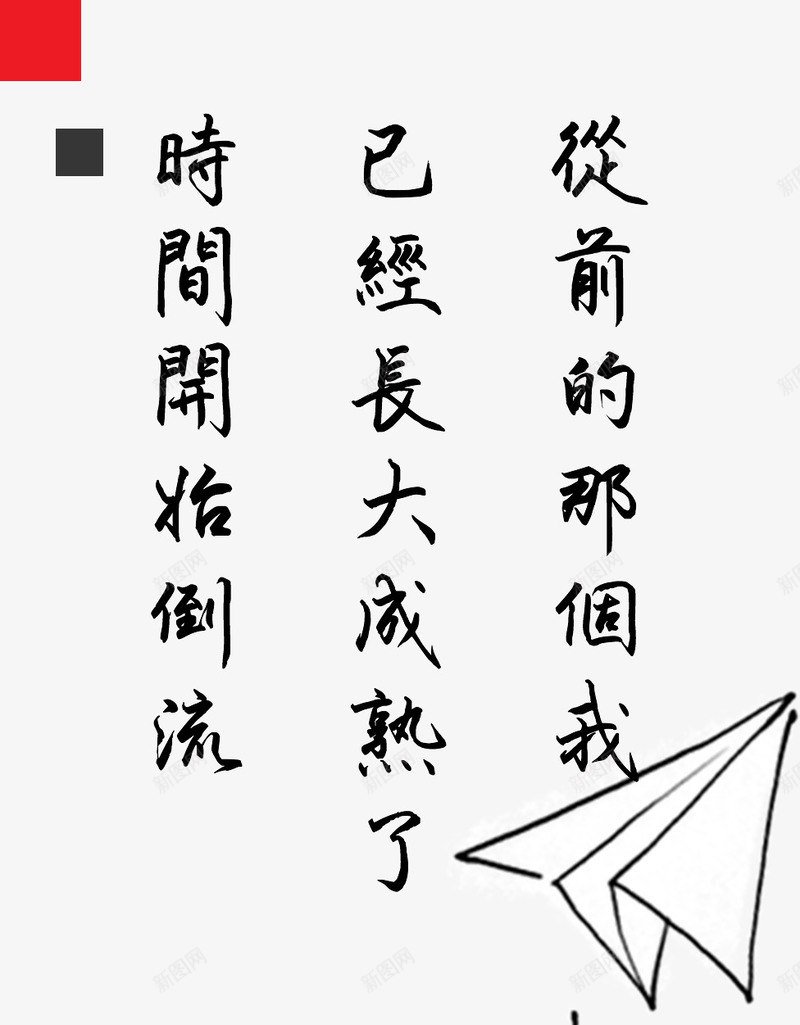 從前的那個我
已經長大成熟了
時間開始倒流